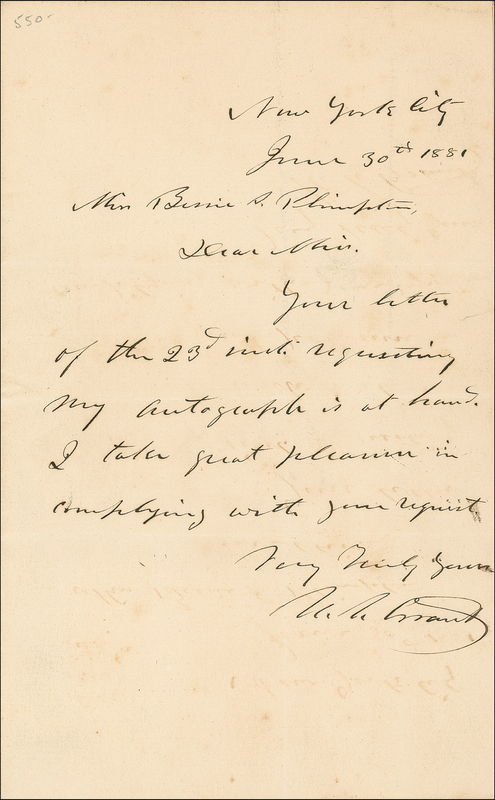 550-
New York City
June 30th 1881
Miss Bessie S. Plimpton,
Dear Miss.
Your letter
of the 23d inst. requesting
my autograph is at hand.
I take great pleasure in
complying with your request.
Very Truly Yours
U. S. Grant